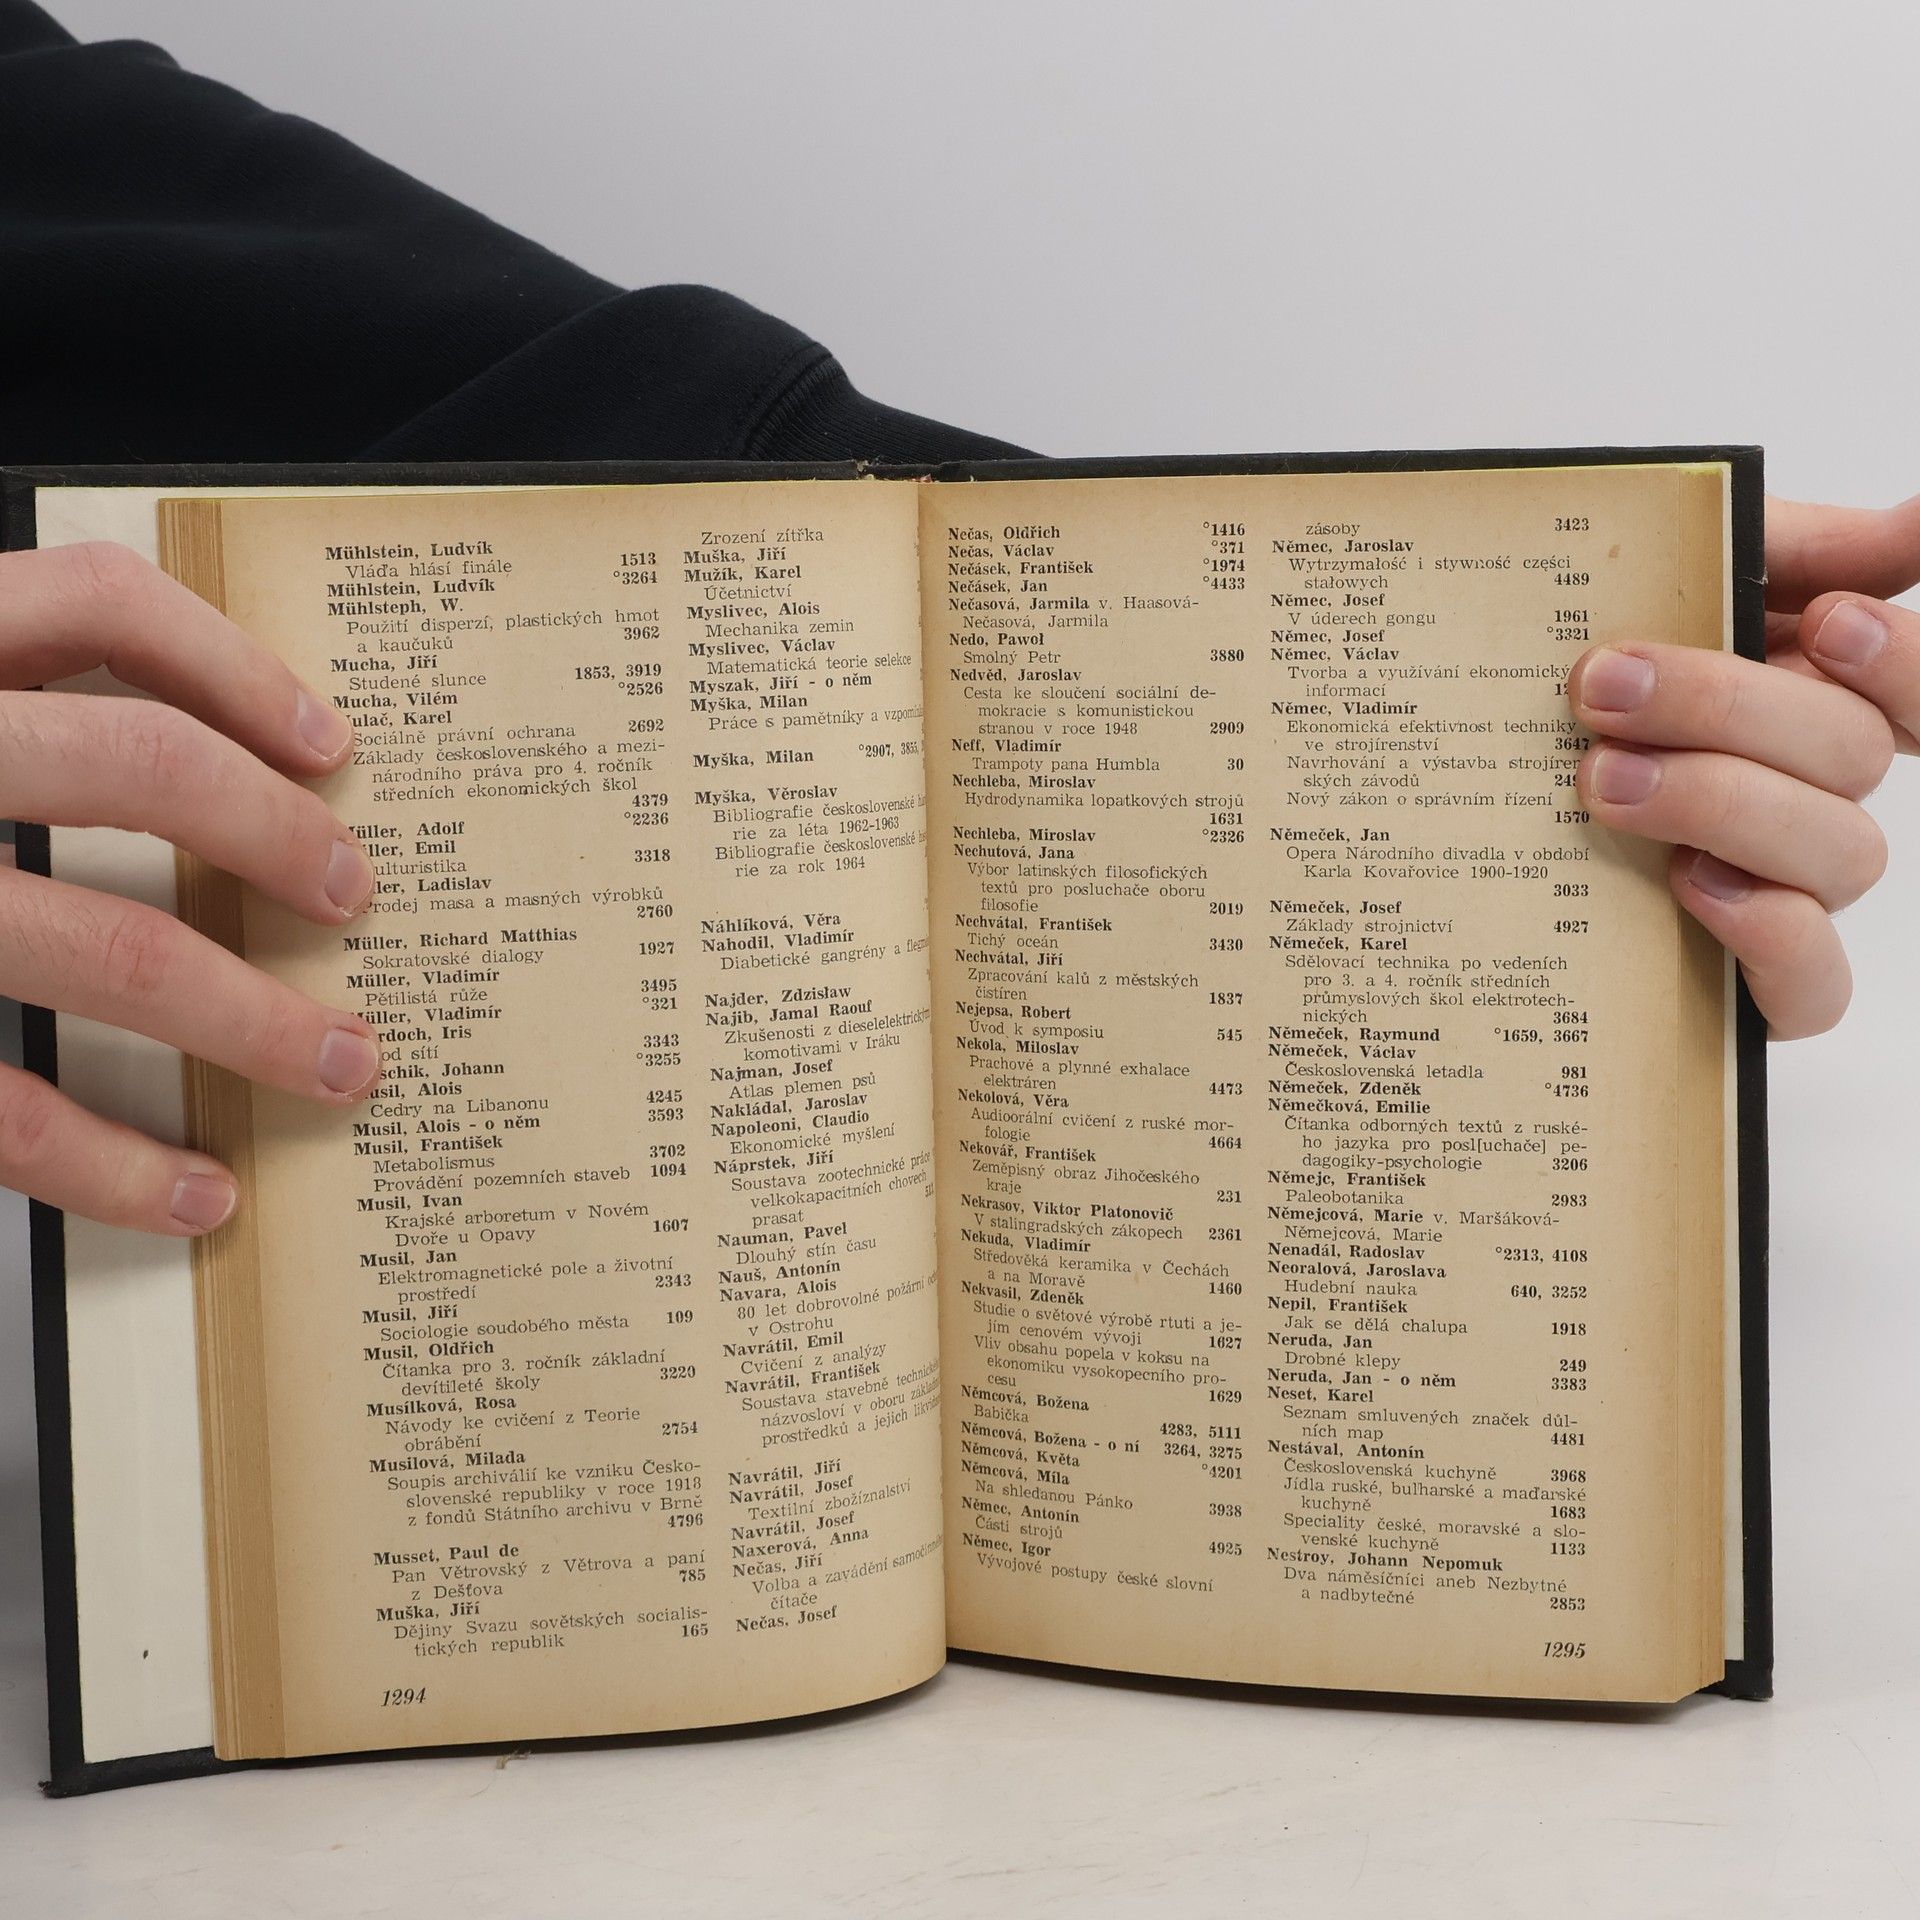 Mühlstein, Ludvík
Vláďa hlásí finále 1513
Mühlstein, Ludvík °3264
Mühlsteph, W.
Použití disperzí, plastických hmot
a kaučuků 3962
Mucha, Jiří
Studené slunce 1853, 3919
Mucha, Vilém °2526
Karel
Sociálně právní ochrana 2692
Základy československého a mezi-
národního práva pro 4. ročník
středních ekonomických škol
4379
Adolf °2236
Emil
3318
Ladislav
Prodej masa a masných výrobků
2760
Müller, Richard Matthias
Sokratovské dialogy 1927
Müller, Vladimír
Pětilistá růže 3495
Müller, Vladimír °321
Iris
sítí 3343
Johann °3255
Musil, Alois
Cedry na Libanonu 4245
Musil, Alois - o něm 3593
Musil, František
Metabolismus 3702
Provádění pozemních staveb 1094
Musil, Ivan
Krajské arboretum v Novém
Dvoře u Opavy 1607
Musil, Jan
Elektromagnetické pole a životní
prostředí 2343
Musil, Jiří
Sociologie soudobého města 109
Musil, Oldřich
Čítanka pro 3. ročník základní
devítileté školy 3220
Musílková, Rosa
Návody ke cvičení z Teorie
obrábění 2754
Musilová, Milada
Soupis archiválií ke vzniku Česko-
slovenské republiky v roce 1918
z fondů Státního archivu v Brně
4796
Musset, Paul de
Pan Větrovský z Větrova a paní
z Dešťova 785
Muška, Jiří
Dějiny Svazu sovětských socialis-
tických republik 165
1294
Zrození zítřka
Muška, Jiří
Mužík, Karel
Účetnictví
Myslivec, Alois
Mechanika zemin
Myslivec, Václav
Matematická teorie selekce
Myszak, Jiří - o něm
Myška, Milan
Práce s pamětníky a
Myška, Milan °2907, 3855,
Myška, Věroslav
Bibliografie československé
rie za léta 1962-1963
Bibliografie československé
rie za rok 1964
Náhlíková, Věra
Nahodil, Vladimír
Diabetické gangrény a
Najder, Zdzisław
Najib, Jamal Raouf
Zkušenosti z
komotivami v Iráku
Najman, Josef
Atlas plemen psů
Nakládal, Jaroslav
Napoleoni, Claudio
Ekonomické myšlení
Náprstek, Jiří
Soustava zootechnické práce
velkokapacitních chovech
prasat
Nauman, Pavel
Dlouhý stín času
Nauš, Antonín
Navara, Alois
80 let dobrovolné požární
v Ostrohu
Navrátil, Emil
Cvičení z analýzy
Navrátil, František
Soustava stavebně
názvosloví v oboru
prostředků a jejich
Navrátil, Jiří
Navrátil, Josef
Textilní zbožíznalství
Navrátil, Josef
Naxerová, Anna
Nečas, Jiří
Volba a zavádění
čítače
Nečas, Josef
Nečas, Oldřich °1416
Nečas, Václav °371
Nečásek, František °1974
Nečásek, Jan °4433
Nečasová, Jarmila v. Haasová-
Nečasová, Jarmila
Nedo, Pawoł
Smolný Petr 3880
Nedvěd, Jaroslav
Cesta ke sloučení sociální de-
mokracie s komunistickou
stranou v roce 1948 2909
Neff, Vladimír
Trampoty pana Humbla 30
Nechleba, Miroslav
Hydrodynamika lopatkových strojů
1631
Nechleba, Miroslav °2326
Nechutová, Jana
Výbor latinských filosofických
textů pro posluchače oboru
filosofie 2019
Nechvátal, František
Tichý oceán 3430
Nechvátal, Jiří
Zpracování kalů z městských
čistíren 1837
Nejepsa, Robert
Úvod k symposiu 545
Nekola, Miloslav
Prachové a plynné exhalace
elektráren 4473
Nekolová, Věra
Audioorální cvičení z ruské mor-
fologie 4664
Nekovář, František
Zeměpisný obraz Jihočeského
kraje 231
Nekrasov, Viktor Platonovič
V stalingradských zákopech 2361
Nekuda, Vladimír
Středověká keramika v Čechách
a na Moravě 1460
Nekvasil, Zdeněk
Studie o světové výrobě rtuti a je-
jím cenovém vývoji 1627
Vliv obsahu popela v koksu na
ekonomiku vysokopecního pro-
cesu 1629
Němcová, Božena
Babička 4283, 5111
Němcová, Božena - o ní 3264, 3275
Němcová, Květa °4201
Němcová, Míla
Na shledanou Pánko 3938
Němec, Antonín
Části strojů 4925
Němec, Igor
Vývojové postupy české slovní
zásoby 3423
Němec, Jaroslav
Wytrzymałość i stywność części
stałowych 4489
Němec, Josef
V úderech gongu 1961
Němec, Josef °3321
Němec, Václav
Tvorba a využívání
informací
Němec, Vladimír
Ekonomická efektivnost techniky
ve strojírenství 3647
Navrhování a výstavba strojíren-
ských závodů
Nový zákon o správním řízení
1570
Němeček, Jan
Opera Národního divadla v období
Karla Kovařovice 1900-1920
3033
Němeček, Josef
Základy strojnictví 4927
Němeček, Karel
Sdělovací technika po vedeních
pro 3. a 4. ročník středních
průmyslových škol elektrotech-
nických 3684
Němeček, Raymund °1659, 3667
Němeček, Václav
Československá letadla 981
Němeček, Zdeněk °4736
Němečková, Emilie
Čítanka odborných textů z ruské-
ho jazyka pro posl[uchače] pe-
dagogiky-psychologie 3206
Němejc, František
Paleobotanika 2983
Němejcová, Marie v. Maršáková-
Němejcová, Marie
Nenadál, Radoslav °2313, 4108
Neoralová, Jaroslava
Hudební nauka 640, 3252
Nepil, František
Jak se dělá chalupa 1918
Neruda, Jan
Drobné klepy 249
Neruda, Jan - o něm 3383
Neset, Karel
Seznam smluvených značek důl-
ních map 4481
Nestával, Antonín
Československá kuchyně 3968
Jídla ruské, bulharské a maďarské
kuchyně 1683
Speciality české, moravské a slo-
venské kuchyně 1133
Nestroy, Johann Nepomuk
Dva náměsíčníci aneb Nezbytné
a nadbytečné 2853
1295